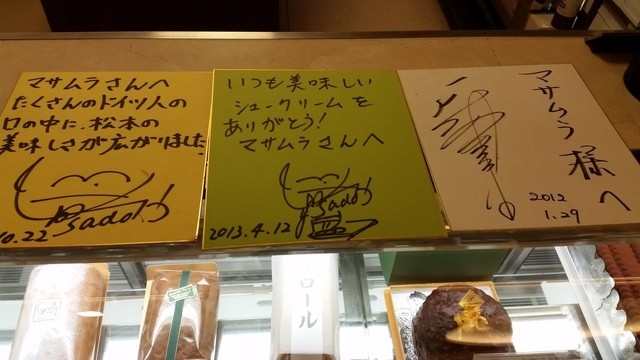 マサムラさんへ
たくさんのドイツ人の
口の中に、松本の
美味しさが広がりました
10.22
いつも美味しい
シュークリームを
ありがとう!
マサムラさんへ
2013.4.12
マサムラ様へ
2012
1.29
ロール